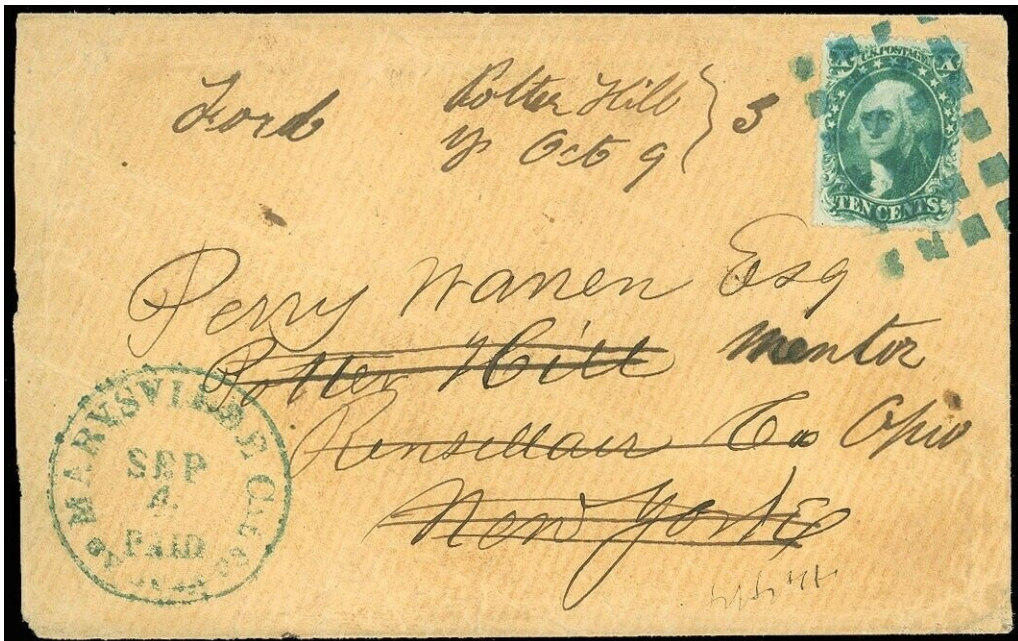 Ford Potter Hill } 3
Y Oct 9
X U.S. POSTAGE X
TEN CENTS
Perry Warren Esq
Potter Hill Mentor
Rensellair Co Ohio
New York
MARYSVILLE CAL
SEP
4
PAID